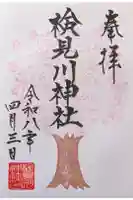 奉拝
検見川神社
令和八年
四月三日